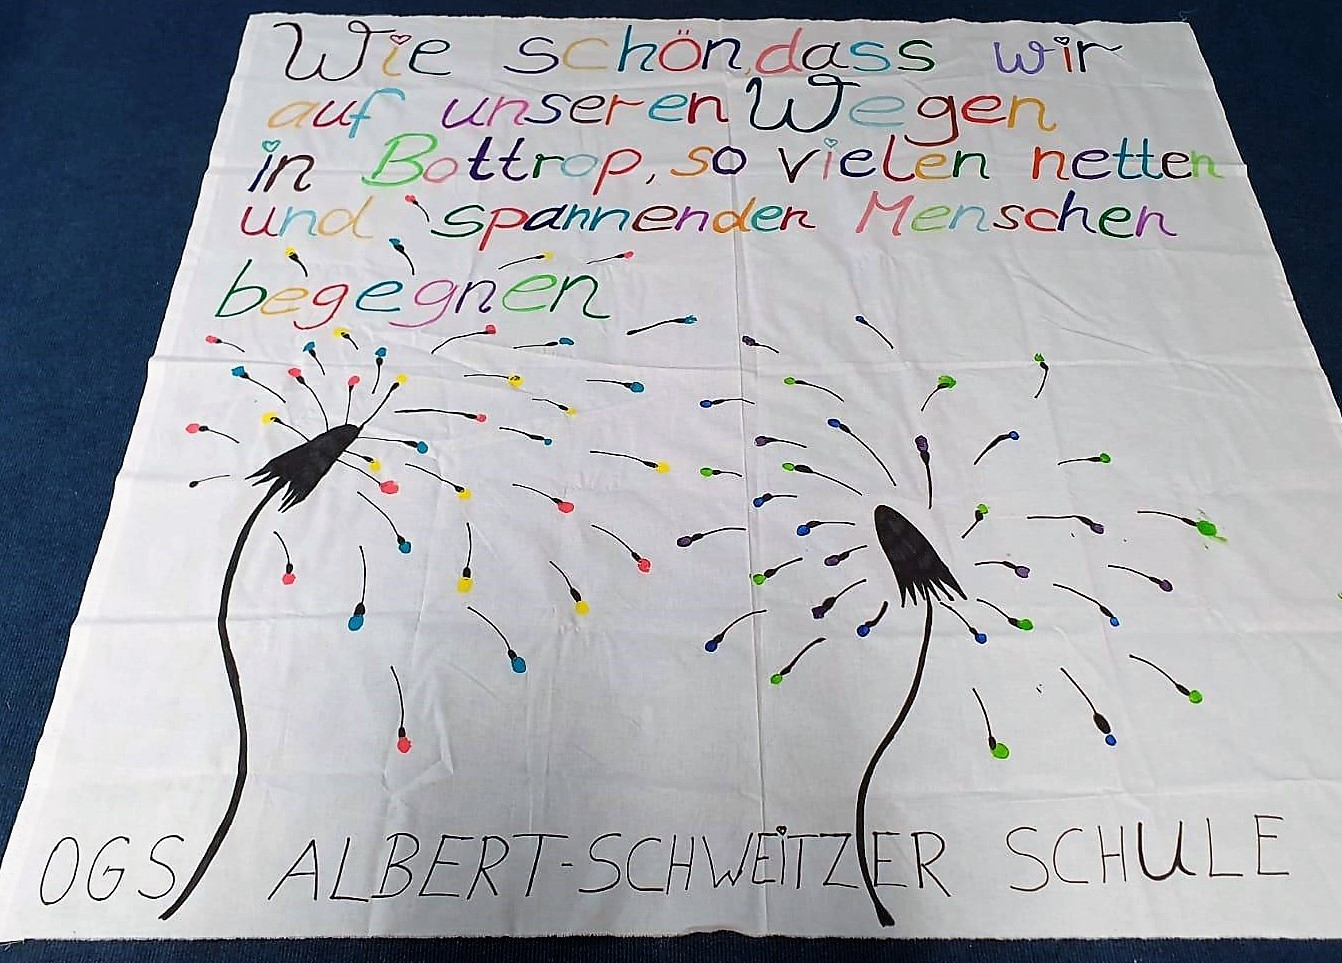 Wie schön, dass wir
auf unseren Wegen
in Bottrop, so vielen netten
und spannenden Menschen
begegnen
OGS ALBERT-SCHWEiTZER SCHULE